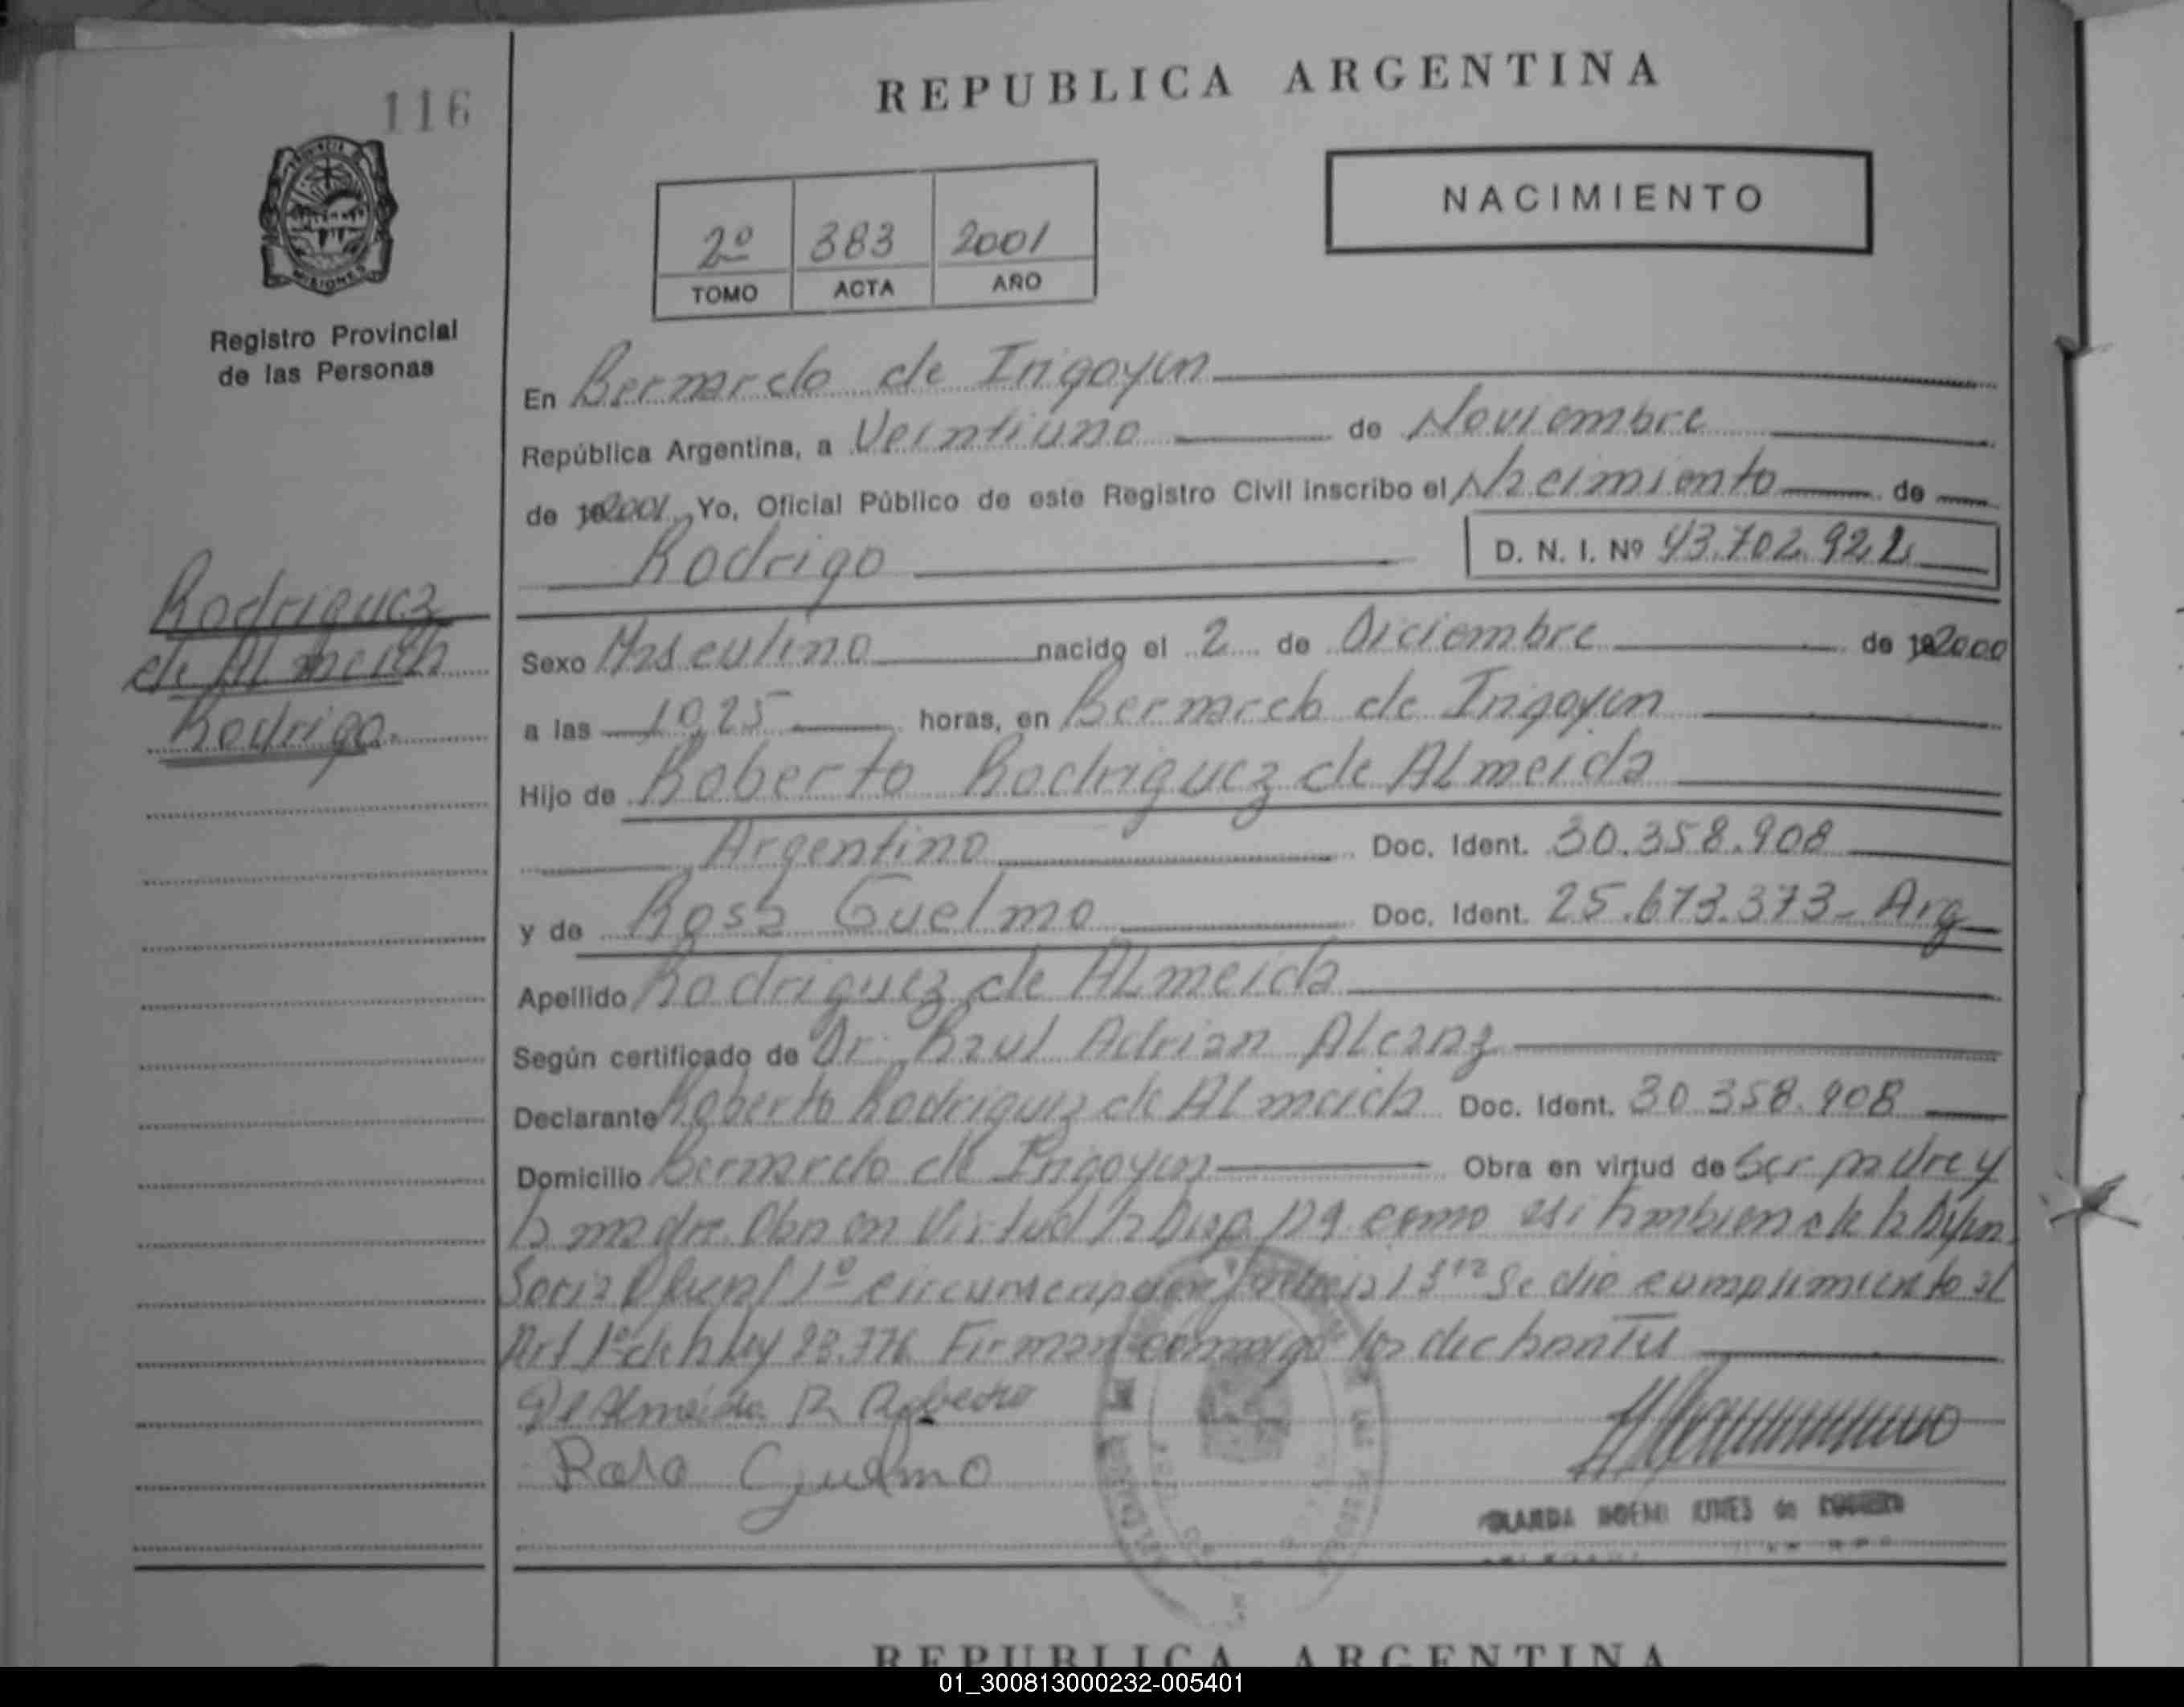 116
REPUBLICA ARGENTINA
NACIMIENTO
2º 383 2001
TOMO ACTA AÑO
PROVINCIA DE
MISIONES
Registro Provincial
de las Personas
En Bernardo de Irigoyen
República Argentina, a Veintiuno de Noviembre
de 2001 Yo, Oficial Público de este Registro Civil inscribo el Nacimiento de
Rodrigo
D. N. I. Nº 43.702.922
Rodriguez
de Almeida
Rodrigo.
Sexo Masculino nacido el 2 de Diciembre de 2000
a las 10,25 horas, en Bernardo de Irigoyen
Hijo de Roberto Rodriguez de Almeida
Argentino Doc. Ident. 30.358.908
y de Rosa Guelmo Doc. Ident. 25.673.373- Arg
Apellido Rodriguez de Almeida
Según certificado de Dr. Raul Adrian Alcanz
Declarante Roberto Rodriguez de Almeida Doc. Ident. 30.358.908
Domicilio Bernardo de Irigoyen Obra en virtud de ser padre y
la madre. Obra en Virtud la Disp. 129 como asi tambien de la
1º circunscripcion Se dio cumplimiento al
Art 1º de la ley 23.776 Firman conmigo los declarantes
De Almeida R Roberto
Rosa Guelmo
NOEMI de
REPUBLICA ARGENTINA
01_300813000232-005401